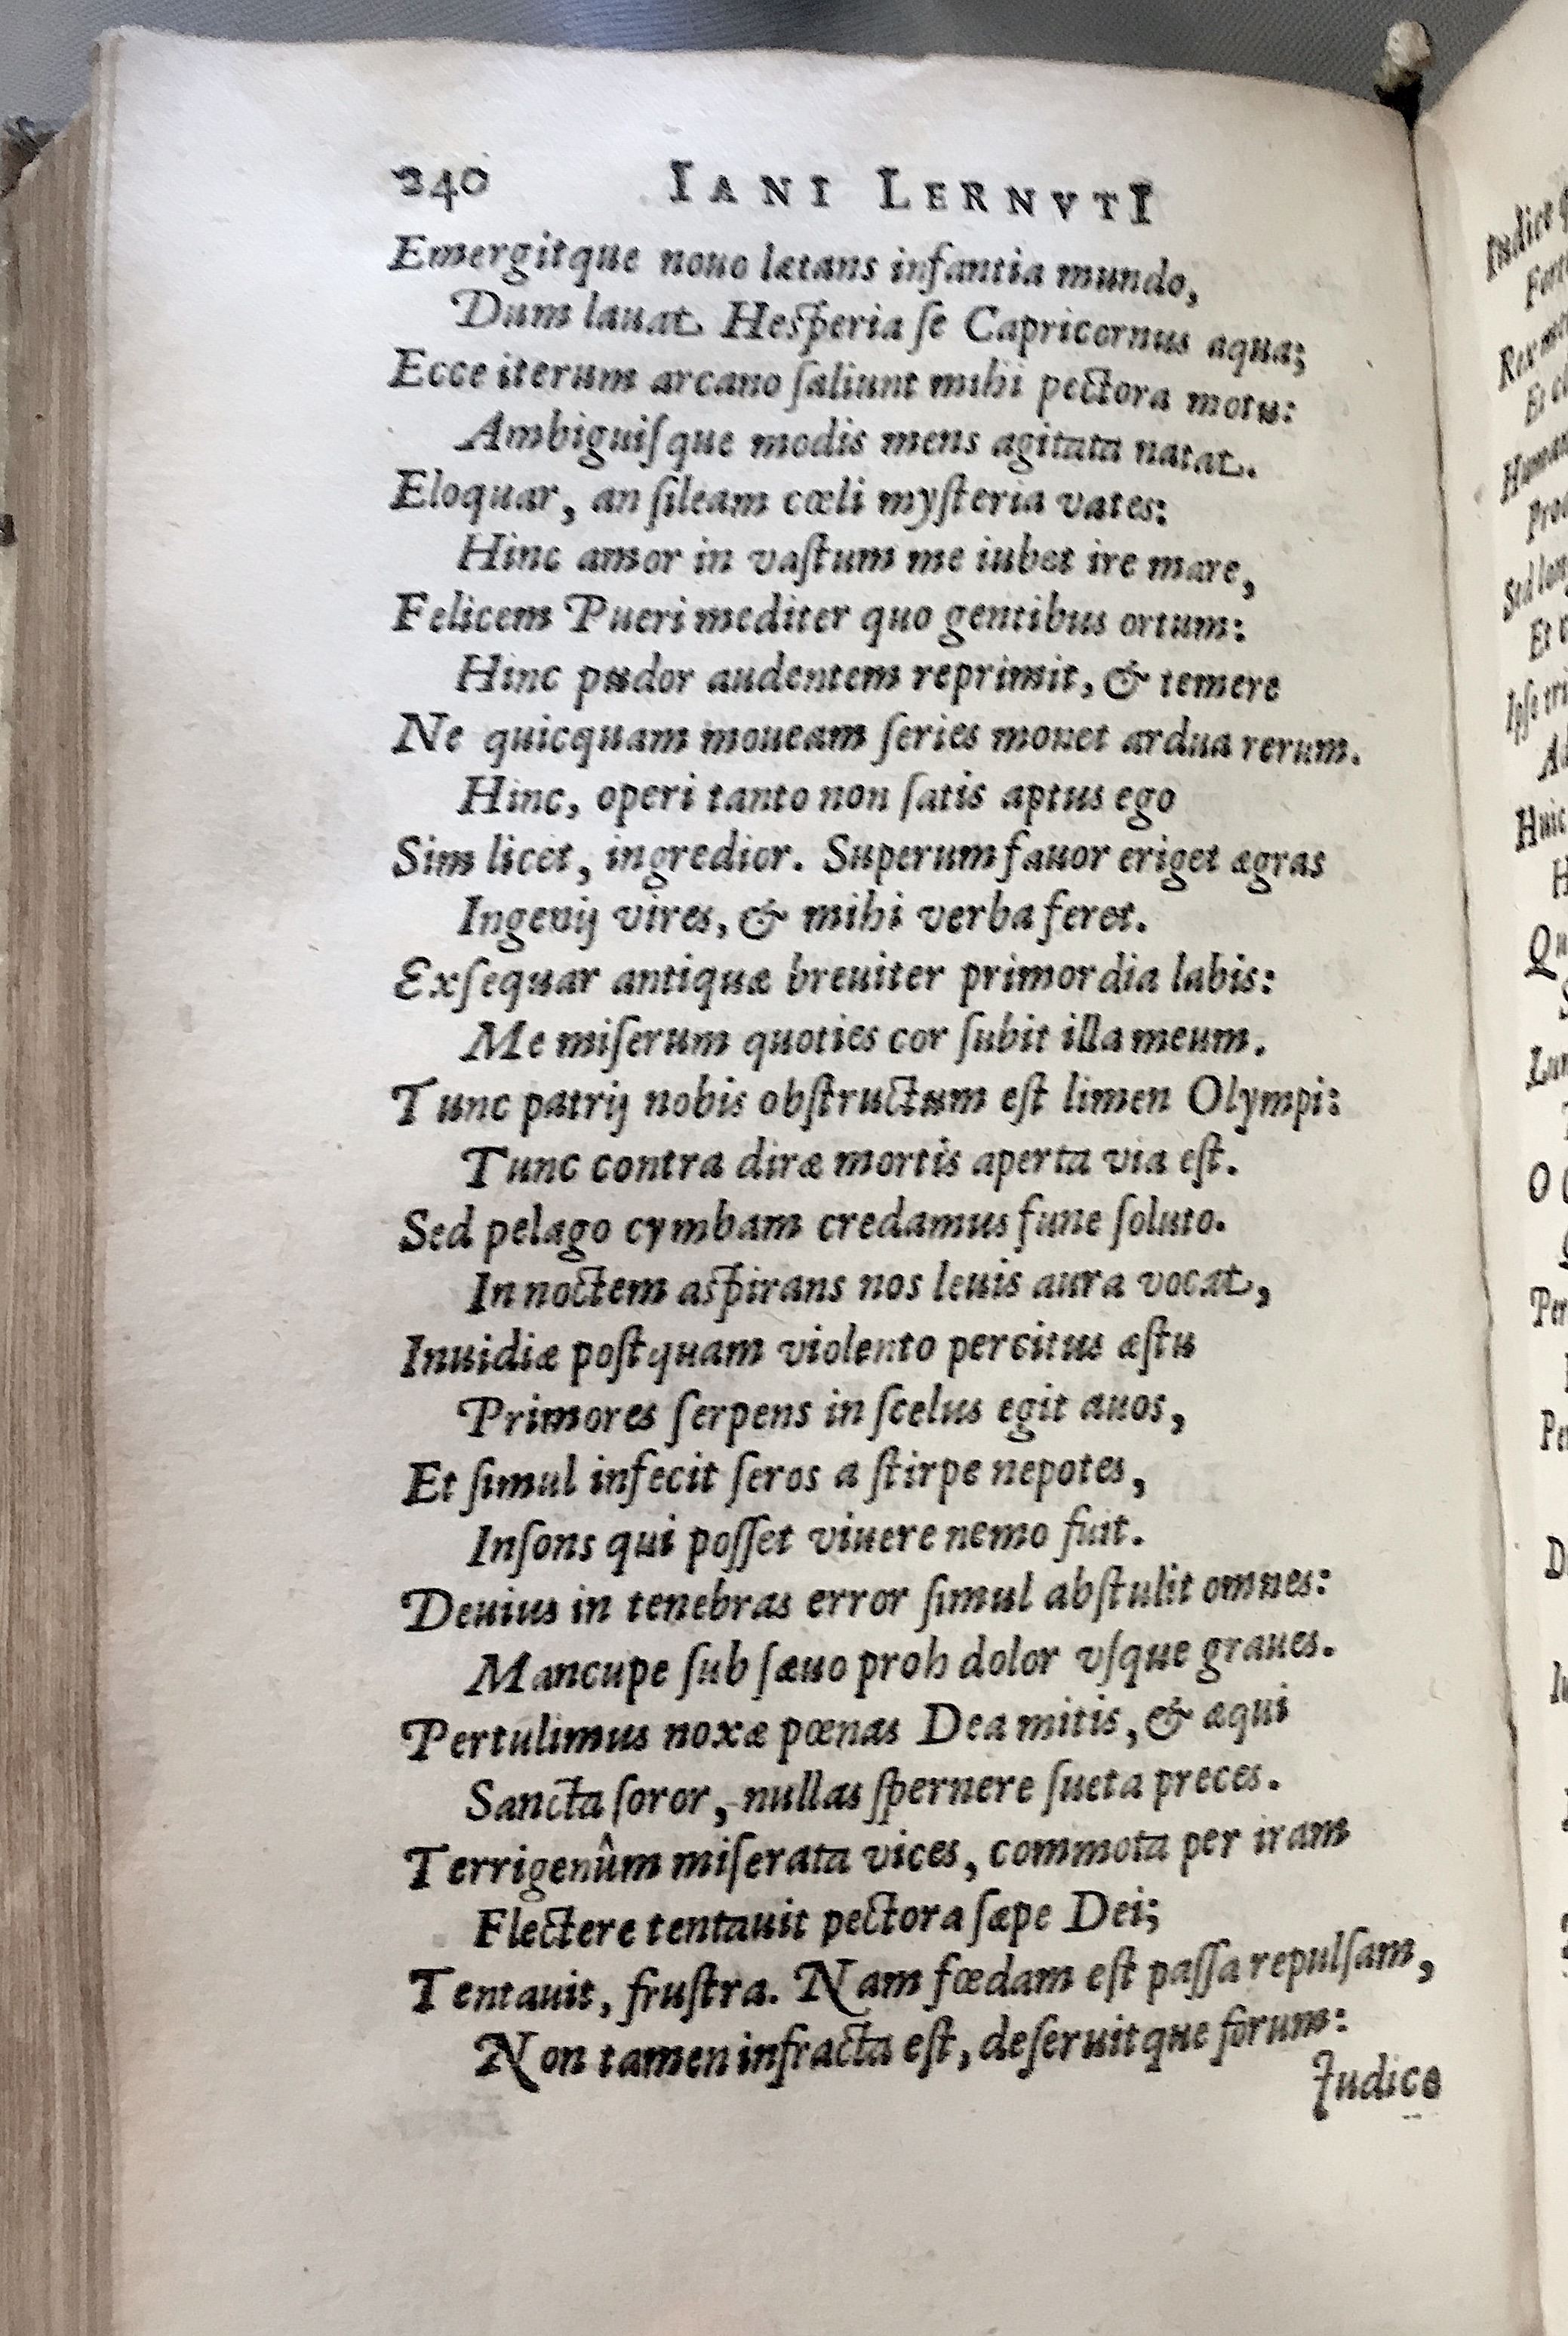 240 IANI LERNVTI
Emergitque nouo lætans infantia mundo,
Dum lauat Hesperia ſe Capricornus aqua;
Ecce iterum arcano ſaliunt mihi pectora motu:
Ambiguiſque modis mens agitata natat.
Eloquar, an ſileam cœli myſteria vates:
Hinc amor in vaſtum me iubet ire mare,
Felicem Pueri mediter quo gentibus ortum:
Hinc pudor audentem reprimit, & temere
Ne quicquam moueam ſeries monet ardua rerum.
Hinc, operi tanto non ſatis aptus ego
Sim licet, ingredior. Superum fauor eriget ægras
Ingenij vires, & mihi verba feret.
Exſequar antiquæ breuiter primordia labis:
Me miſerum quoties cor ſubit illa meum.
Tunc patrij nobis obſtructum eſt limen Olympi:
Tunc contra diræ mortis aperta via eſt.
Sed pelago cymbam credamus fune ſoluto.
In noctem aspirans nos leuis aura vocat,
Inuidiæ poſtquam violento percitus æſtu
Primores ſerpens in ſcelus egit auos,
Et ſimul infecit ſeros a ſtirpe nepotes,
Inſons qui poſſet viuere nemo fuit.
Deuius in tenebras error ſimul abſtulit omnes:
Mancupe ſub ſæuo proh dolor vſque graues.
Pertulimus noxæ pœnas Dea mitis, & æqui
Sancta ſoror, nullas ſpernere ſueta preces.
Terrigenûm miſerata vices, commota per iram
Flectere tentauit pectora ſæpe Dei;
Tentauit, fruſtra. Nam fœdam eſt paſſa repulſam,
Non tamen infracta eſt, deſeruitque forum:
Judice